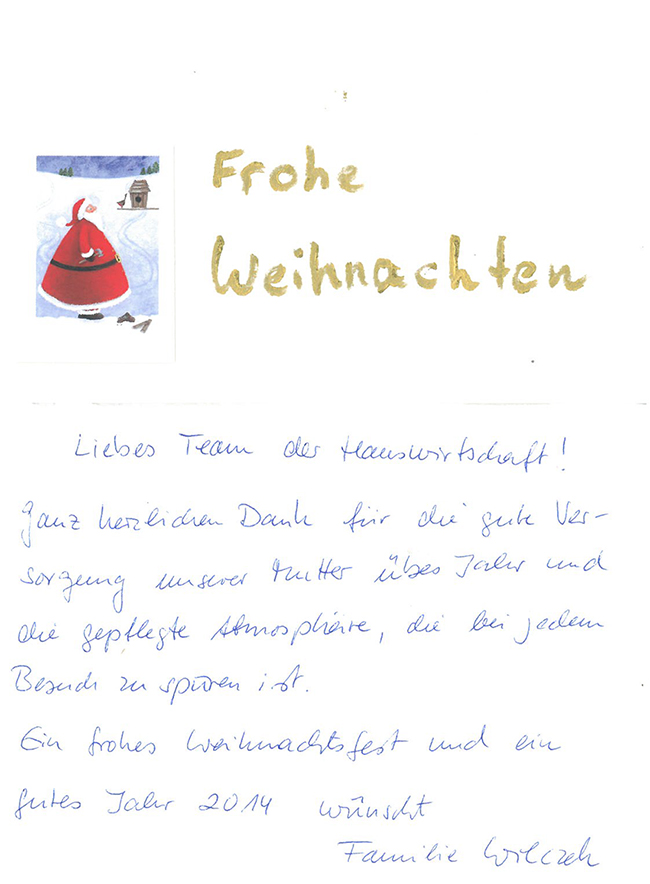 Frohe
Weihnachten
Liebes Team der Hauswirtschaft!
Ganz herzlichen Dank für die gute Ver-
sorgung unserer Mutter übes Jahr und
die gepflegte Atmosphäre, die bei jedem
Besuch zu spüren ist.
Ein frohes Weihnachtsfest und ein
gutes Jahr 2014 wünscht
Familie Wilczek